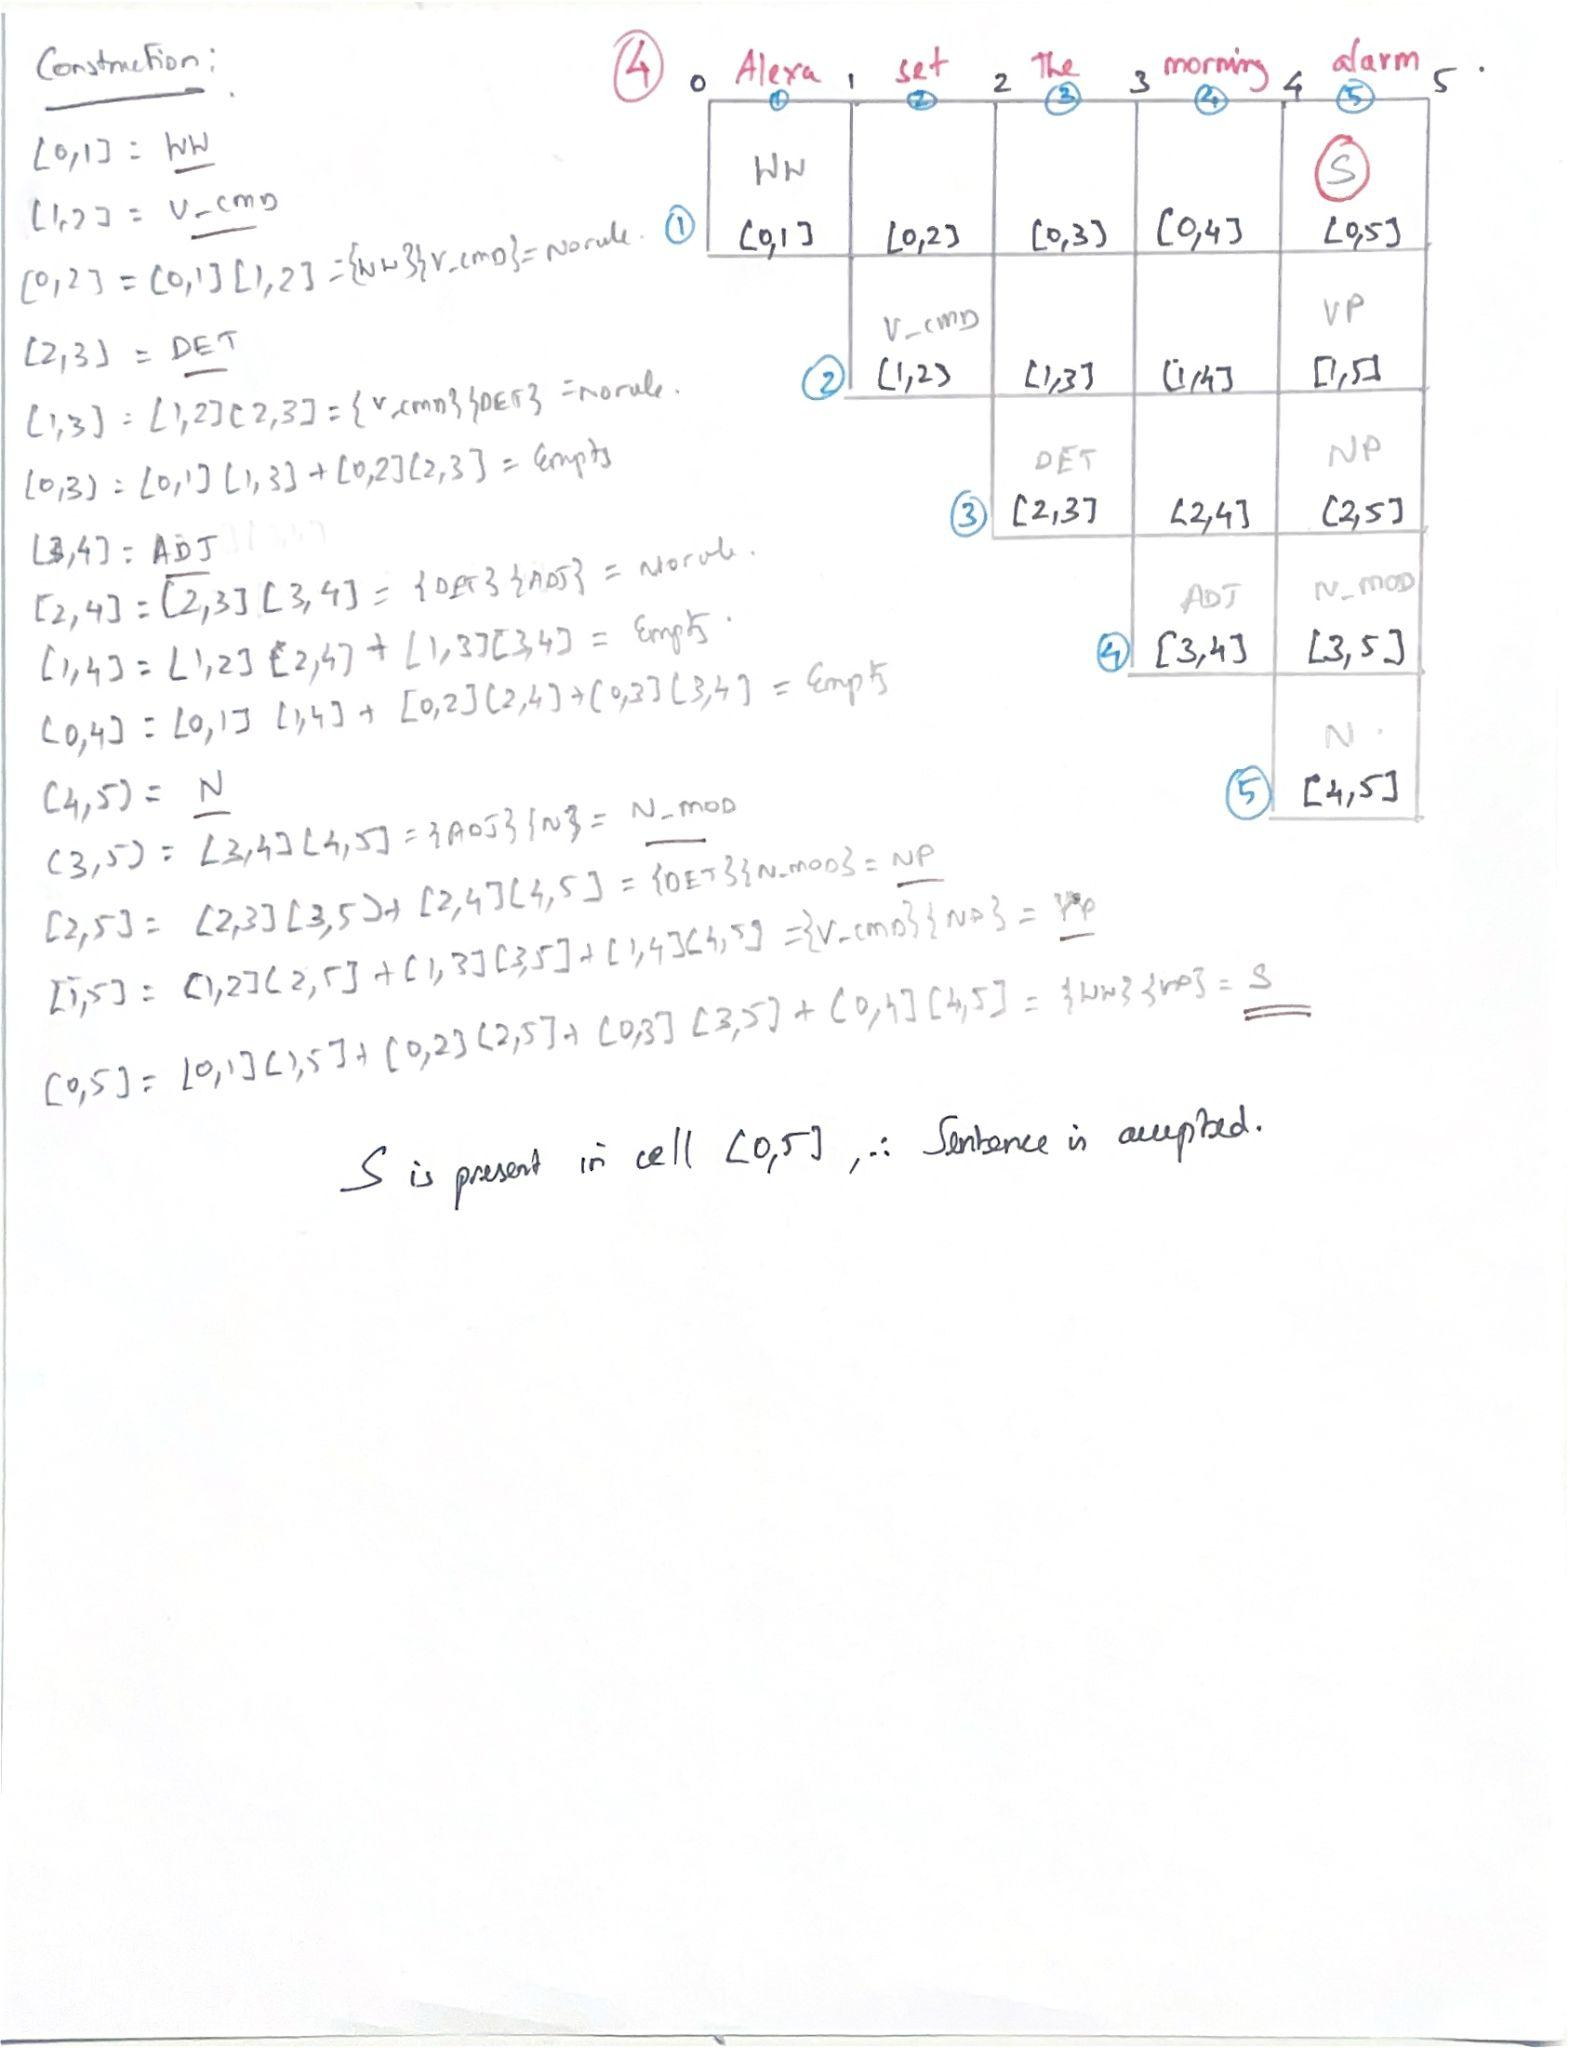 Construction:
[0,1] = WW
[1,2] = V_CMD
[0,2] = [0,1] [1,2] = {WW}{V_CMD} = No rule.
[2,3] = DET
[1,3] = [1,2] [2,3] = {V_CMD} {DET} = no rule.
[0,3] = [0,1] [1,3] + [0,2] [2,3] = Empty
[3,4] = ADJ
[2,4] = [2,3] [3,4] = {DET} {ADJ} = No rule.
[1,4] = [1,2] [2,4] + [1,3] [3,4] = Empty.
[0,4] = [0,1] [1,4] + [0,2] [2,4] + [0,3] [3,4] = Empty
[4,5] = N
[3,5] = [3,4] [4,5] = {ADJ} {N} = N_MOD
[2,5] = [2,3] [3,5] + [2,4] [4,5] = {DET} {N_MOD} = NP
[1,5] = [1,2] [2,5] + [1,3] [3,5] + [1,4] [4,5] = {V_CMD} {NP} = VP
[0,5] = [0,1] [1,5] + [0,2] [2,5] + [0,3] [3,5] + [0,4] [4,5] = {WW} {VP} = S
④ 0 Alexa 1 set 2 The 3 morning 4 alarm 5 .
① ② ③ ④ ⑤
WW S
① [0,1] [0,2] [0,3] [0,4] [0,5]
V_CMD VP
② [1,2] [1,3] [1,4] [1,5]
DET NP
③ [2,3] [2,4] [2,5]
ADJ N_MOD
④ [3,4] [3,5]
N .
⑤ [4,5]
S is present in cell [0,5] , ∴ Sentence is accepted.